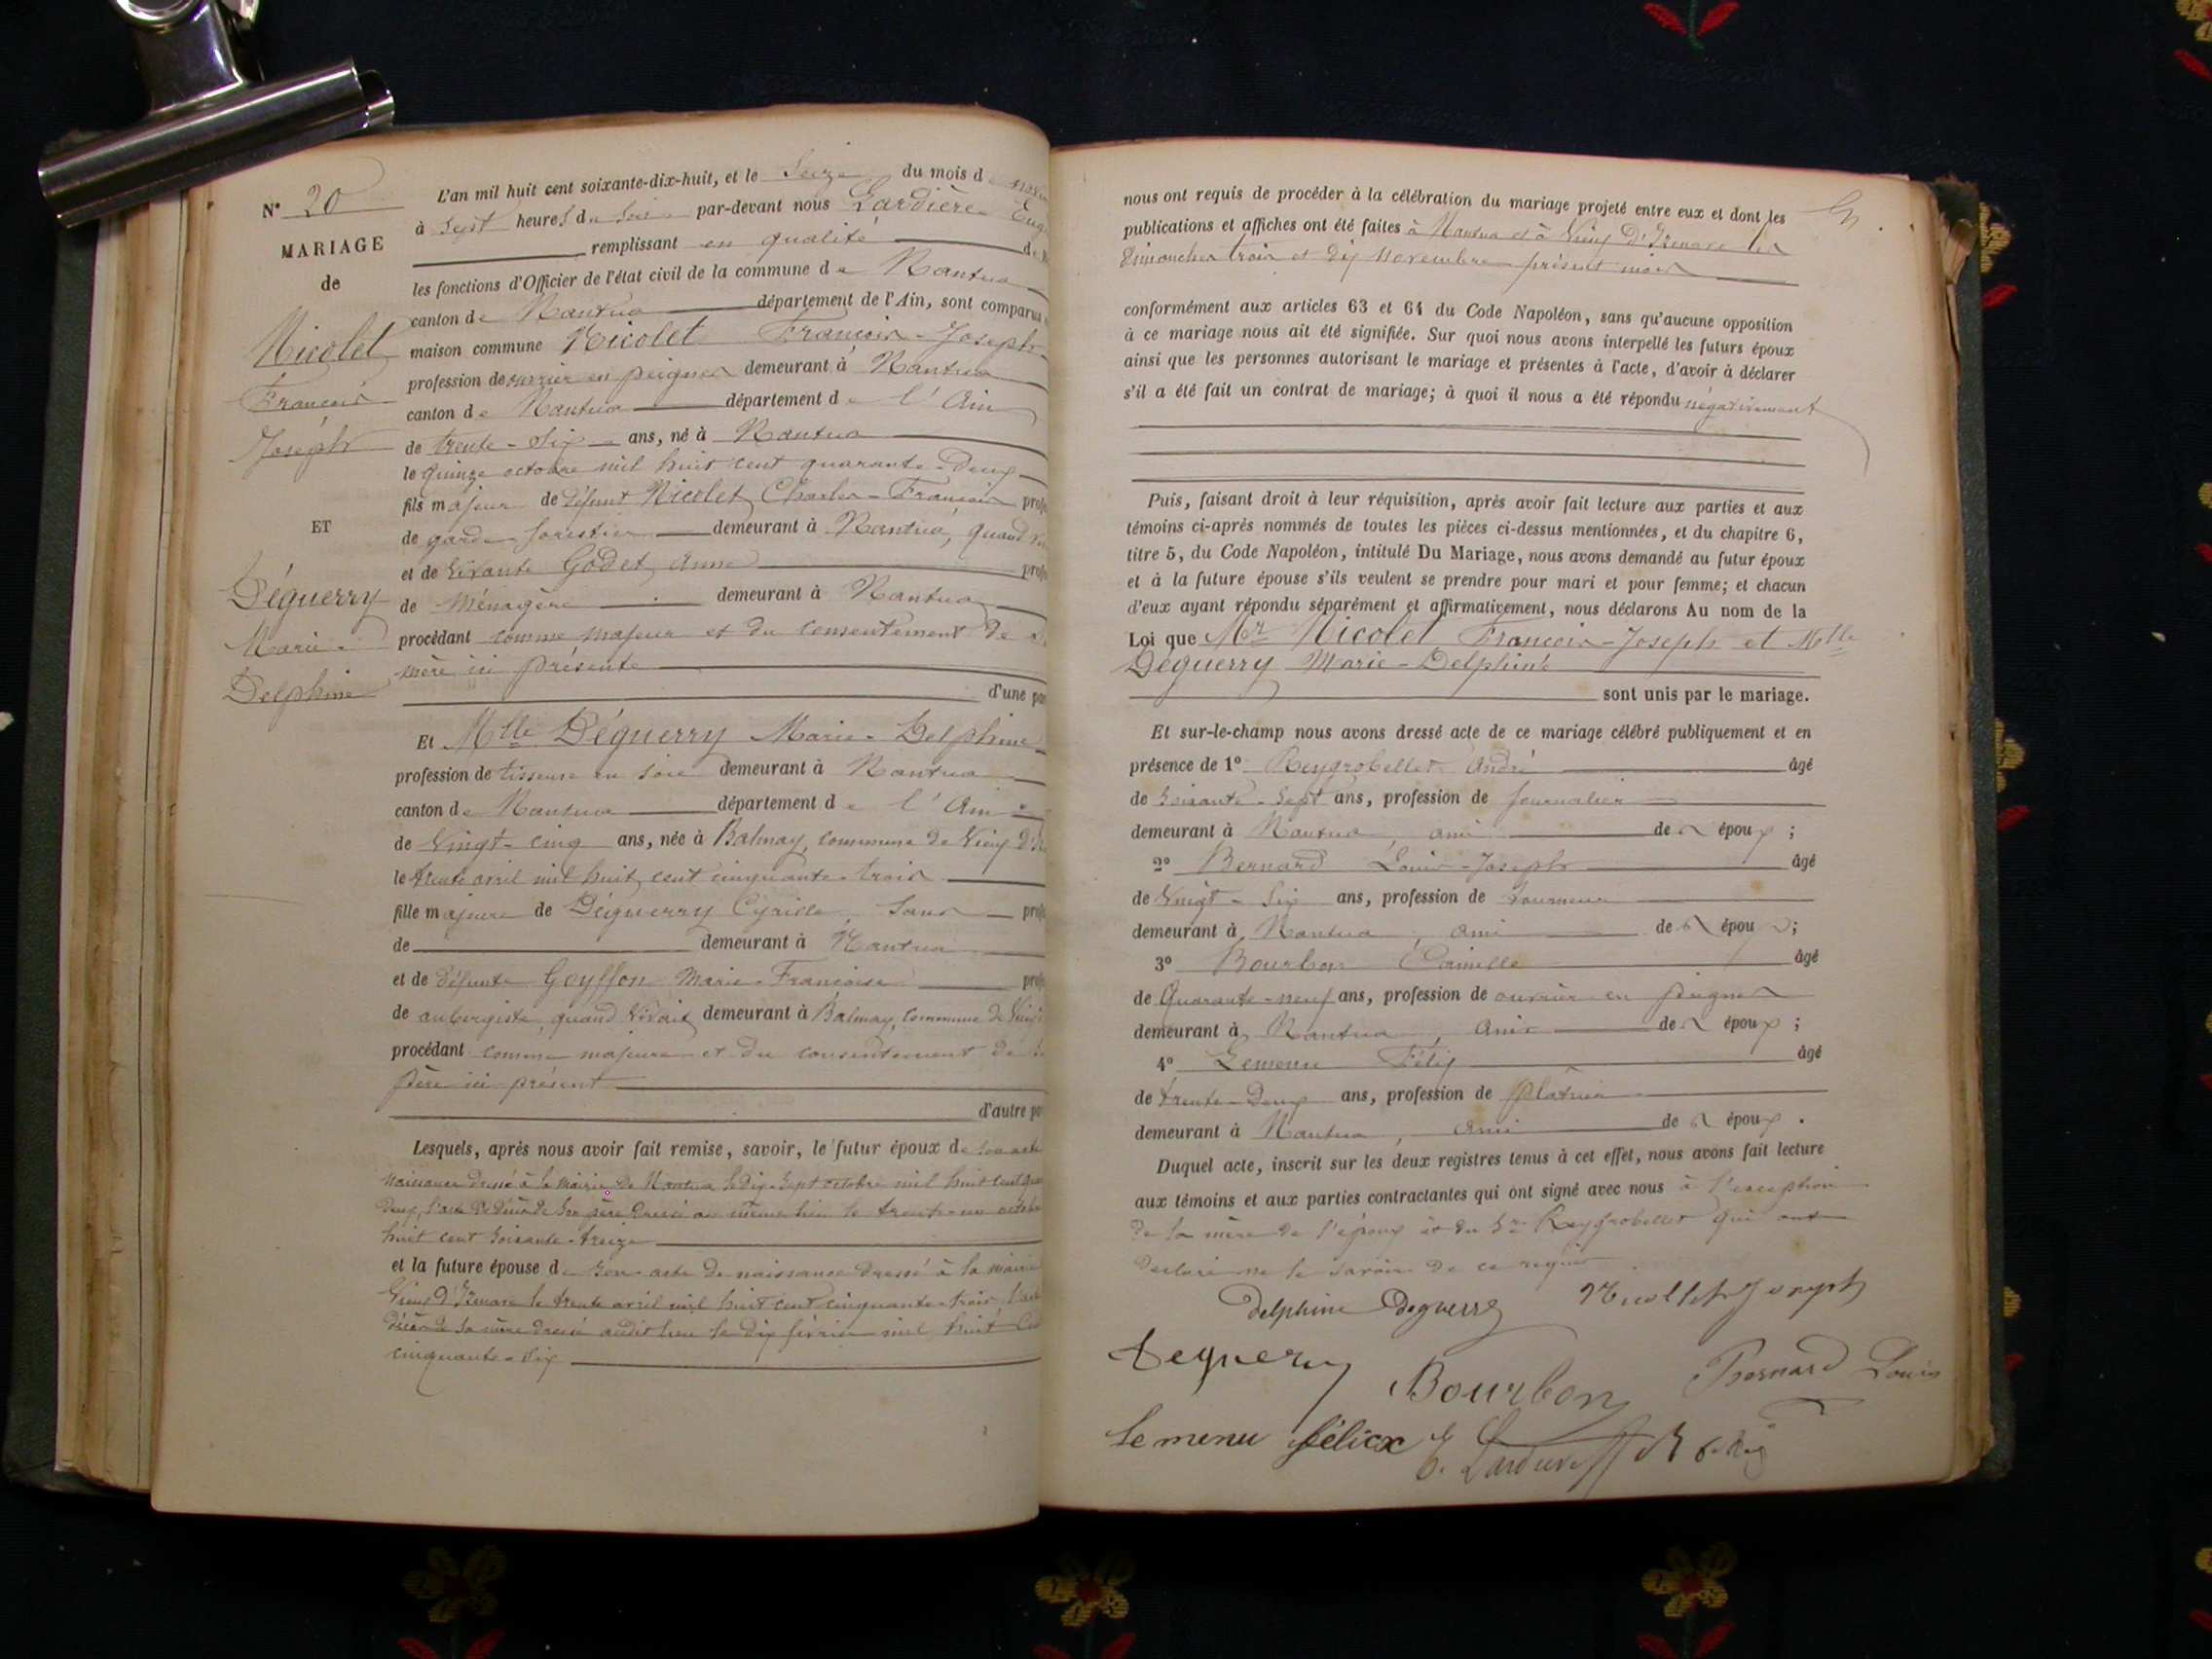 N° 20
MARIAGE
de
Nicolet
François
Joseph
ET
Déguerry
Marie
Delphine
L'an mil huit cent soixante-dix-huit, et le Seize du mois de
à Sept heures du Soir par-devant nous Lardière
remplissant en qualité
les fonctions d'Officier de l'état civil de la commune de Nantua
canton de Nantua département de l'Ain, sont comparus
maison commune Nicolet François-Joseph
profession de ouvrier en peignes demeurant à Nantua
canton de Nantua département de l'Ain
de trente-six ans, né à Nantua
le quinze octobre mil huit cent quarante-deux
fils majeur de défunt Nicolet Charles-François
de garde forestier demeurant à Nantua, quand
et de vivante Godet Anne
de Ménagère demeurant à Nantua
procédant comme majeur et du consentement de
mère ici présente
d'une
Et Mlle Déguerry Marie-Delphine
profession de tisseuse en soie demeurant à Nantua
canton de Nantua département de l'Ain
de Vingt-cinq ans, née à Balmay, commune de Vieux
le trente avril mil huit cent cinquante-trois
fille majeure de Déguerry Cyrille, sans
de demeurant à Nantua
et de défunte Goyffon Marie-Françoise
de aubergiste, quand vivait demeurant à Balmay, commune de
procédant comme majeure et du consentement de
père ici présent
d'autre
Lesquels, après nous avoir fait remise, savoir, le futur époux de son acte
naissance dressé à la mairie de Nantua le dix-sept octobre mil huit cent
deux, l'acte de décès de son père dressé au même lieu le trente-un octobre
huit cent soixante-treize
et la future épouse de son acte de naissance dressé à la mairie
Vieux d'Izenave le trente avril mil huit cent cinquante-trois
décès de sa mère dressé audit lieu le dix février mil huit
cinquante-six
nous ont requis de procéder à la célébration du mariage projeté entre eux et dont les
publications et affiches ont été faites à Nantua et à Vieux d'Izenave les
Dimanches trois et dix novembre présent mois
conformément aux articles 63 et 64 du Code Napoléon, sans qu'aucune opposition
à ce mariage nous ait été signifiée. Sur quoi nous avons interpellé les futurs époux
ainsi que les personnes autorisant le mariage et présentes à l'acte, d'avoir à déclarer
s'il a été fait un contrat de mariage; à quoi il nous a été répondu négativement
Puis, faisant droit à leur réquisition, après avoir fait lecture aux parties et aux
témoins ci-après nommés de toutes les pièces ci-dessus mentionnées, et du chapitre 6,
titre 5, du Code Napoléon, intitulé Du Mariage, nous avons demandé au futur époux
et à la future épouse s'ils veulent se prendre pour mari et pour femme; et chacun
d'eux ayant répondu séparément et affirmativement, nous déclarons Au nom de la
Loi que Mr Nicolet François-Joseph et Mlle
Déguerry Marie-Delphine
sont unis par le mariage.
Et sur-le-champ nous avons dressé acte de ce mariage célébré publiquement et en
présence de 1° Reygrobellet André âgé
de soixante-sept ans, profession de journalier
demeurant à Nantua, ami des époux;
2° Bernard Louis-Joseph âgé
de Vingt-six ans, profession de tourneur
demeurant à Nantua, ami des époux;
3° Bourbon Camille âgé
de Quarante-neuf ans, profession de ouvrier en peignes
demeurant à Nantua, ami des époux;
4° Lemenu Félix âgé
de trente-deux ans, profession de plâtrier
demeurant à Nantua, ami des époux.
Duquel acte, inscrit sur les deux registres tenus à cet effet, nous avons fait lecture
aux témoins et aux parties contractantes qui ont signé avec nous à l'exception
de la mère de l'époux et du Sr Reygrobellet qui ont
déclaré ne le savoir de ce requis
Delphine Deguerry Nicollet Joseph
Deguerry Bourbon Bernard Louis
Le menu félicx E. Lardière